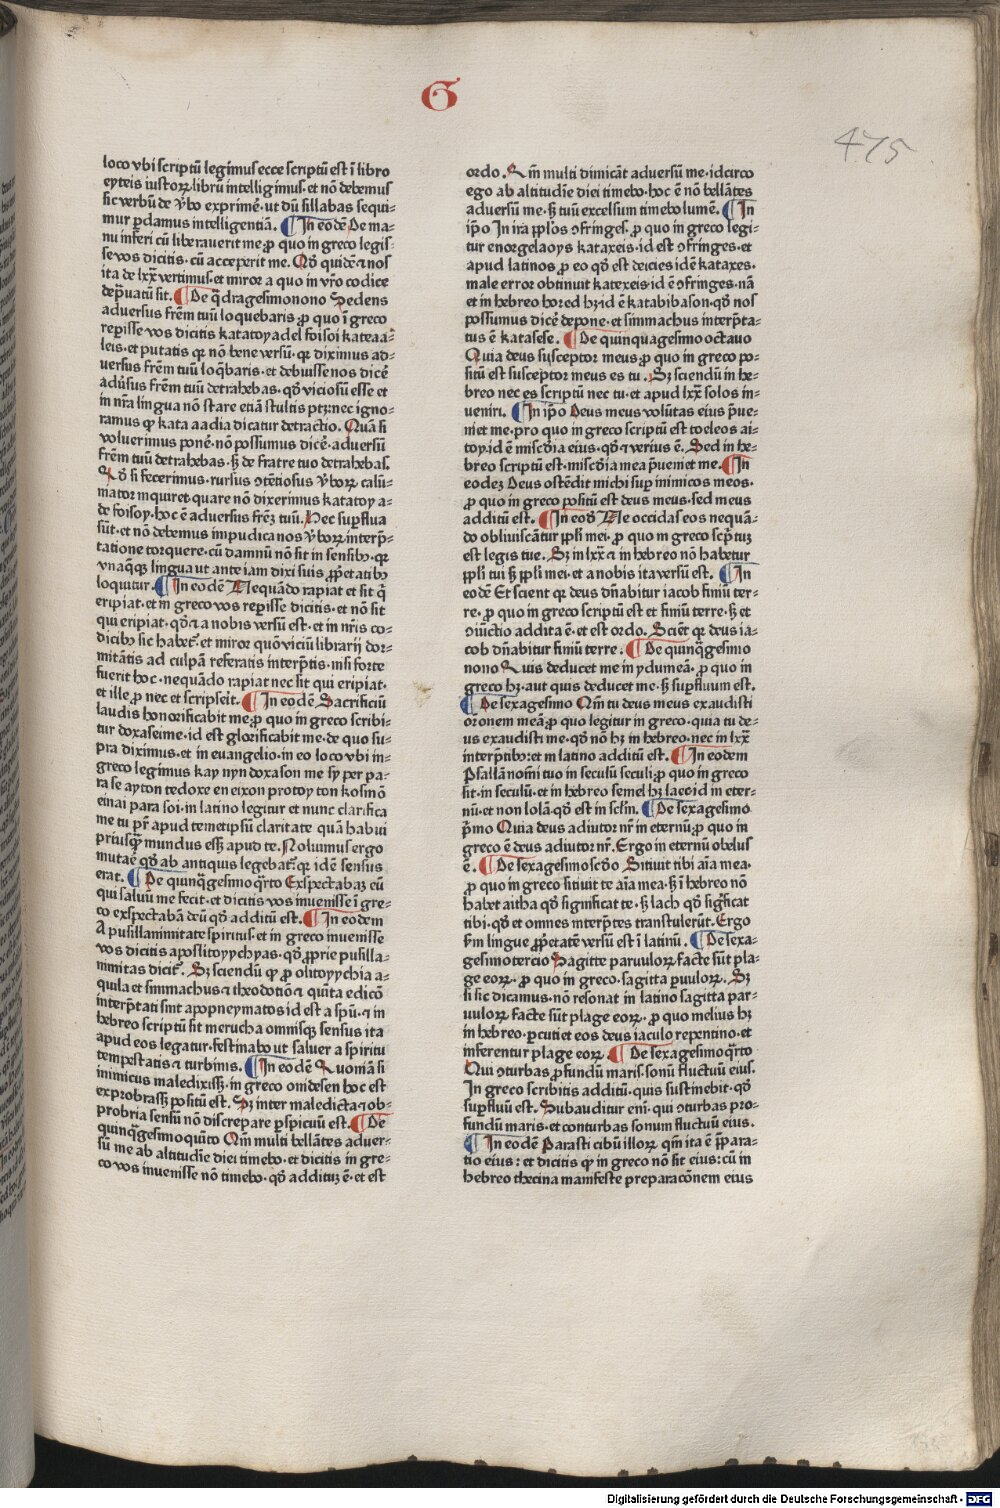 G
475
loco vbi scriptū legimus ecce scriptū est ī libro
eyteis iustoꝝ librū intelligimus· et nō debemus
sic verbū de v̄bo exprimē· ut dū sillabas sequi⸗
mur ꝑdamus intelligentiā. ¶ In eodē De ma⸗
nu inferi cū liberauerit me ꝓ quo in greco legis⸗
se vos dicitis· cū acceperit me. Qd̄ quidē ⁊ nos
ita de lxx vertimus· et miror a quo in vr̄o codice
dep̄uatū sit. ¶ De q̄dragesimonono Sedens
aduersus frēm tuū loquebaris ꝓ quo ī greco
reperisse vos dicitis katatoy adel foisoi kateaa⸗
leis· et putatis qꝛ nō bene versū· qꝛ diximus ad⸗
uersus frēm tuū loq̄baris· et debuisse nos dicē
adūsus frēm tuū detrahebas· qd̄ viciosū esse et
in nr̄a lingua nō stare etiā stultis ptꝫ· nec igno⸗
ramus ꝙ kata aadia dicatur detractio. Quā si
voluerimus ponē· nō possumus dicē· aduersū
frēm tuū detrahebas· sꝫ de fratre tuo detrahebas.
Qd̄ si fecerimus· rursus ↄtētiosus v̄boꝝ calū⸗
mator inquiret quare nō dixerimus katatoy a⸗
de foisoy· hoc ē aduersus frēꝫ tuū. Hec supflua
sūt· et nō debemus impudica nos v̄boꝝ interp̄⸗
tatione torquere· cū damnū nō sit in sensibꝰ· qꝛ
vnaq̄qꝫ lingua ut ante iam dixi suis ꝓp̄etatibꝰ
loquitur. ¶ In eodē Nequādo rapiat et sit q̄
eripiat· et in greco vos reperisse dicitis· et nō sit
qui eripiat· qd̄ ⁊ a nobis versū est· et in nr̄is co⸗
dicibꝰ sic habet᷑· et miror quō viciū librarij dor⸗
mitātis ad culpā referatis interp̄tis· nisi forte
fuerit hoc· nequādo rapiat nec sit qui eripiat·
et ille ꝓ nec et scripserit. ¶ In eodē Sacrificiū
laudis honorificabit me ꝓ quo in greco scribi⸗
tur doxaseime· id est glorificabit me· de quo su⸗
pra diximus· et in euangelio· in eo loco vbi in⸗
greco legimus kay nyn doxason me sy per pa⸗
ra se ayton tedoxe en eixon protoy ton kosmō
einai para soi· in latino legitur et nunc clarifica
me tu pr̄ apud temetipsū claritate quā habui
priusq̄ mundus essꝫ apud te. Nolumus ergo
mutaē qd̄ ab antiquis legebat᷑· qꝛ idē sensus
erat. ¶ De quinq̄gesimoq̄rto Exspectabaꝫ eū
qui saluū me fecit· et dicitis vos inuenisse ī gre⸗
co exspectabā deū qd̄ additū est. ¶ In eodem
A pusillanimitate spiritus· et in greco inuenisse
vos dicitis aposlitoyychyas· qd̄ ꝓprie pusilla⸗
nimitas dicit᷑. Sꝫ sciendū ꝙ ꝓ olitoyychia a⸗
quila et simmachus ⁊ theodotiō ⁊ quīta edicō
interp̄tati sint apopneymatos id est a spū· ⁊ in
hebreo scriptū sit merucha omnisqꝫ sensus ita
apud eos legatur· festinabo ut saluer a spiritu
tempestatis ⁊ turbinis. ¶ In eodē Quoniā si
inimicus maledixissꝫ· in greco onidesen hoc est
exprobrassꝫ positū est. Sꝫ inter maledicta ⁊ ob⸗
probria sensū nō discrepare perspicuū est. ¶ De
quinq̄gesimoquīto Qm̄ multi bellātes aduer⸗
sū me ab altitudīe diei timebo· et dicitis in gre⸗
co vos inuenisse nō timebo· qd̄ additū ē· et est
ordo. Qm̄ multi dimicāt aduersū me· idcirco
ego ab altitudīe diei timebo· hoc ē nō bellātes
aduersū me· sꝫ tuū excelsum timebo lumē. ¶ In
ip̄o In ira ppl̄os ↄfringes· ꝓ quo in greco legi⸗
tur enorgelaoys kataxeis· id est ↄfringes· et
apud latinos ꝓ eo qd̄ est deicies idē kataxes·
male error obtinuit katexeis· id ē ↄfringes· nā
et in hebreo hored hꝫ· id ē katabibason· qd̄ nos
possumus dicē depone· et simmachus interp̄ta⸗
tus ē katasese. ¶ De quinquagesimo octauo
Quia deus susceptor meus ꝓ quo in greco po⸗
sitū est susceptor meus es tu. Sꝫ sciendū in he⸗
breo nec es scriptū nec tu· et apud lxx solos in⸗
ueniri. ¶ In ip̄o Deus meus volūtas eius p̄ue⸗
niet me· pro quo in greco scriptū est toeleos ai⸗
toy· id ē miscd̓ia eius· qd̄ ⁊ verius ē. Sed in he⸗
breo scriptū est· miscd̓ia mea p̄ueniet me. ¶ In
eodeꝫ Deus ostēdit michi sup inimicos meos·
ꝓ quo in greco positū est deus meus· sed meus
additū est. ¶ In eod̄ Ne occidas eos nequā⸗
do obliuiscātur ppl̄i mei· ꝓ quo in greco scp̄tuꝫ
est legis tue. Sꝫ in lxx ⁊ in hebreo nō habetur
ppl̄i tui sꝫ ppl̄i mei· et a nobis ita versū est. ¶ In
eodē Et scient qꝛ deus dn̄abitur iacob finiū ter⸗
re· ꝓ quo in greco scriptū est et finiū terre· sꝫ et
ↄiūctio addita ē· et est ordo. Sciēt qꝛ deus ia⸗
cob dn̄abitur finiū terre. ¶ De quinq̄gesimo
nono Quis deducet me in ydumeā· ꝓ quo in
greco hꝫ· aut quis deducet me· sꝫ supfluum est.
¶ De sexagesimo Qm̄ tu deus meus exaudisti
or̄onem meā ꝓ quo legitur in greco· quia tu de⸗
us exaudisti me· qd̄ nō hꝫ in hebreo· nec in lxx
interp̄tibꝰ· et in latino additū est. ¶ In eodem
Psallā nomī tuo in seculū seculi ꝓ quo in greco
sit· in seculū· et in hebreo semel hꝫ laec· id in eter⸗
nū· et non lolā· qd̄ est in scl̄m. ¶ De sexagesimo
p̄mo Quia deus adiutor nr̄ in eternū ꝓ quo in
greco ē deus adiutor nr̄. Ergo in eternū obelus
ē. ¶ De sexagesimoscd̓o Sitiuit tibi aīa mea·
ꝓ quo in greco sitiuit te aīa mea· sꝫ ī hebreo nō
habet aitha qd̄ significat te· sꝫ lach qd̄ sigficat
tibi· qd̄ et omnes interp̄tes transtulerūt. Ergo
fm̄ lingue ꝓp̄etatē versū est ī latinū. ¶ De sexa⸗
gesimotercio Sagitte paruuloꝝ facte sūt pla⸗
ge eoꝝ· ꝓ quo in greco· sagitta ꝑuuloꝝ. Sꝫ
si sic dicamus· nō resonat in latino sagitta par⸗
uuloꝝ facte sūt plage eoꝝ· ꝓ quo melius hꝫ
in hebreo· ꝑcutiet eos deus iaculo repentino· et
inferentur plage eoꝝ. ¶ De sexagesimoq̄rto
Qui ↄturbas ꝓfundū maris· sonū fluctuū eius.
In greco scribitis additū· quis sustinebit· qd̄
supfluū est. Subauditur enī· qui ↄturbas pro⸗
fundū maris· et conturbas sonum fluctuū eius.
¶ In eodē Parasti cibū illoꝝ qm̄ ita ē p̄para⸗
tio eius: et dicitis ꝙ in greco nō sit eius: cū in
hebreo thecina manifeste preparacōnem eius
Digitalisierung gefördert durch die Deutsche Forschungsgemeinschaft - DFG